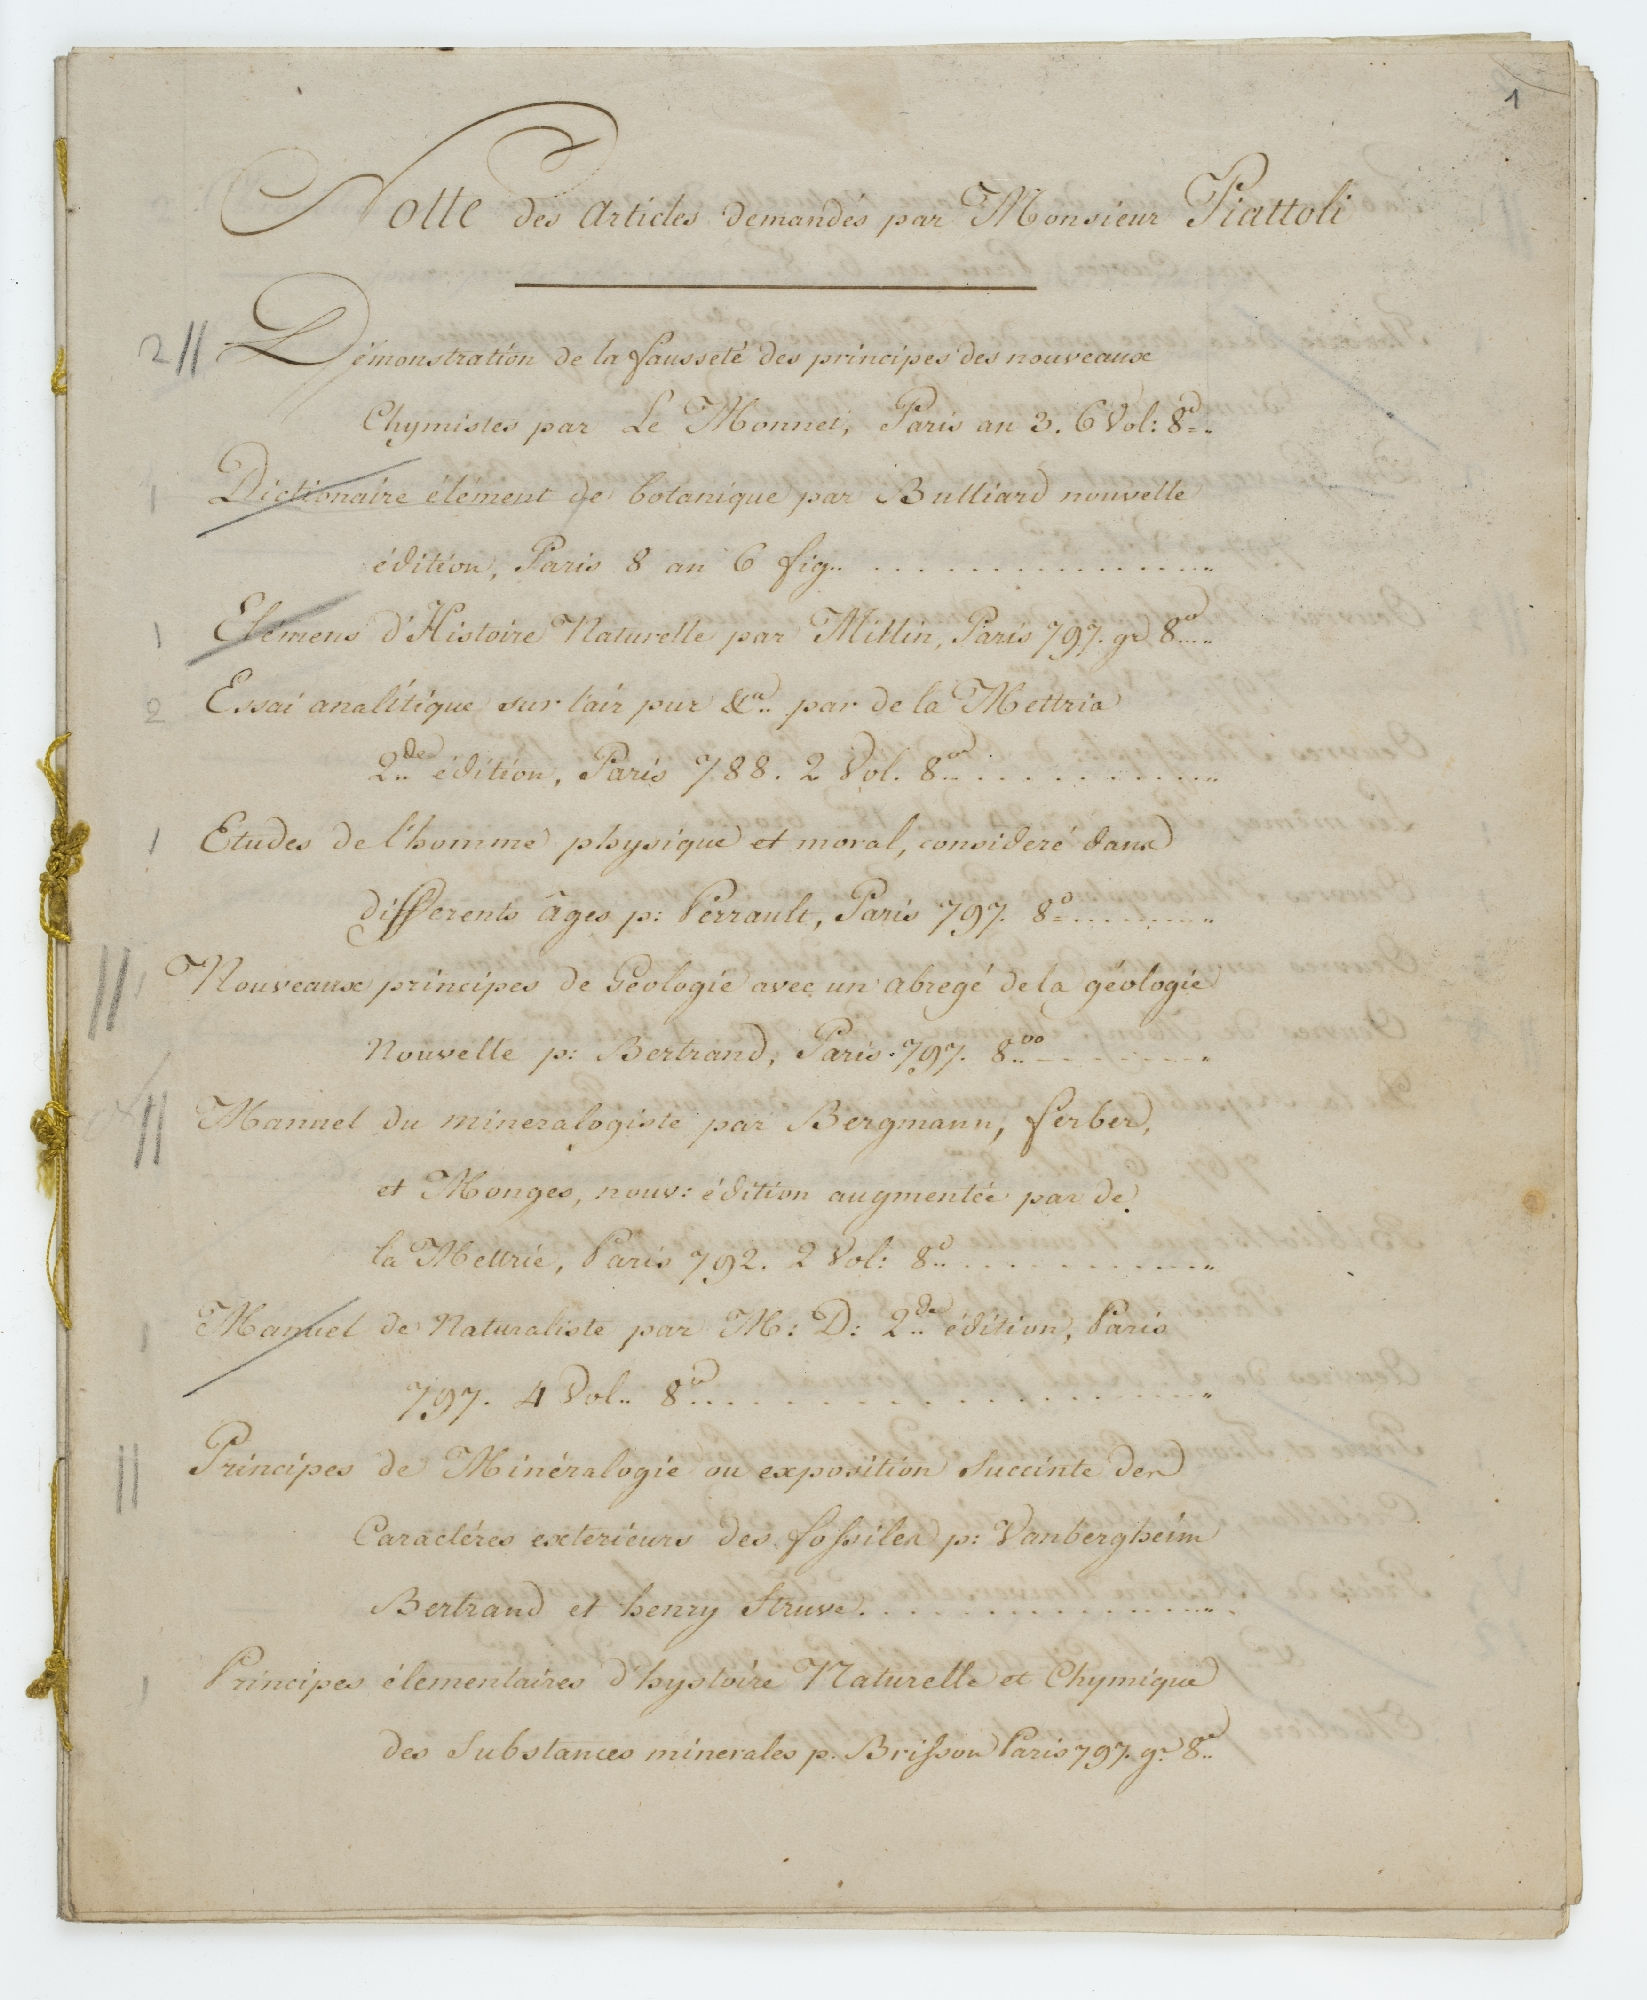 1
Notte des Articles demandés par Monsieur Piattoli
2 || Démonstration de la fausseté des principes des nouveaux
Chymistes par Le Monnet, Paris an 3. 6 Vol: 8º..
1 Dictionaire élément de botanique par Bulliard nouvelle
édition, Paris 8 an 6 fig.. ................
1 Elémens d'Histoire Naturelle par Millin, Paris 797. gr 8º....
2 Essai analitique sur l'air pur &ca.. par de la Mettria
2de édition, Paris 788. 2 Vol. 8vo............
1 Etudes de l'homme physique et moral, consideré dans
differents âges p: Perrault, Paris 797. 8º..........
|| 1 Nouveaux principes de Géologie avec un abregé de la géologie
Nouvelle p: Bertrand, Paris. 797. 8vo..........
|| Manuel du mineralogiste par Bergmann, ferber,
et Monges, nouv: édition augmentée par de
la Mettrie, Paris 792. 2 Vol: 8º............
1 Manuel de Naturaliste par M: D: 2de édition, Paris
797. 4 Vol.. 8º....................
|| Principes de Minéralogie ou exposition Succinte des
Caractéres exterieurs des fossiles p: Vanbergheim
Bertrand et henry Struve. ................
1 Principes élementaires d'hystoire Naturelle et Chymique
des Substances minerales p. Brisson Paris 797. gr 8º..